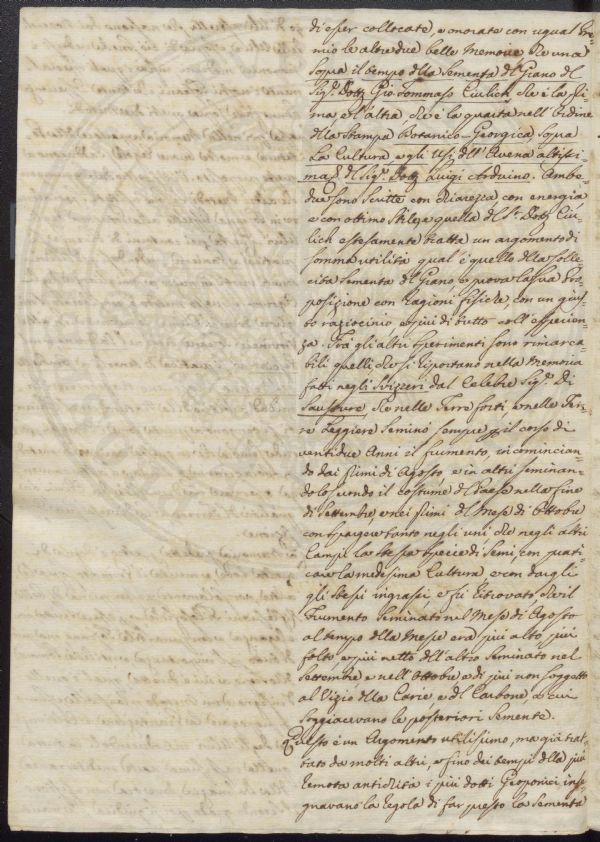 di esser collocate, e onorate con ugual Pre=
mio le altre due belle Memorie. Che una
sopra il tempo della Sementa del Grano del
Sig.r Dott.r Gio: Tommaso Ciulich che è la pri=
ma, e l'altra, che è la quarta nell'Ordine
della Stampa Botanico=Georgica, sopra
La Cultura e gli Usi dell'Avena altissi=
ma, del Sig.r Dott.r Luigi Arduino. Ambe=
due sono scritte con chiarezza, con energia
e con ottimo Stile, e quella del S.r Dott.r Ciu=
lich estesamente tratta un argomento di
somma utilità qual'è quello della solle=
cita sementa del Grano e prova la sua Pro=
posizione con Ragioni fisiche, con un gius=
to raziocinio e più di tutto coll'esperien=
za. Frà gli altri sperimenti sono rimarca=
bili quelli che si riportano nella Memoria
fatti negli Svizzeri dal Celebre Sig.r Di
Saussure che nelle Terre forti e nelle Ter=
re Leggiere seminò sempre p il corso di
ventidue Anni il frumento, incomincian=
do dai primi di Agosto, e in altri seminan=
dolo secondo il costume del Paese nella fine
di Settembre, e nei primi del Mese di Ottobre
con spargere tanto negli uni che negli altri
Campi la stessa specie di Semi, con prati=
care la medesima Cultura e con dargli
gli stessi ingrassi e fù ritrovato, che il
Frumento seminato nel Mese di Agosto
al tempo della Messe era più alto, più
folto, e più netto dell'altro seminato nel
Settembre e nell'Ottobre e di più non soggetto
al Vizio della Carie e del Carbone, a cui
soggiacevano le posteriori Semente.
Questo è un Argomento utilissimo, ma già trat=
tato da molti altri, e fino dei tempi della più
remota antichità i più dotti Geoponici inse=
gnavano la regola di far presto la Sementa